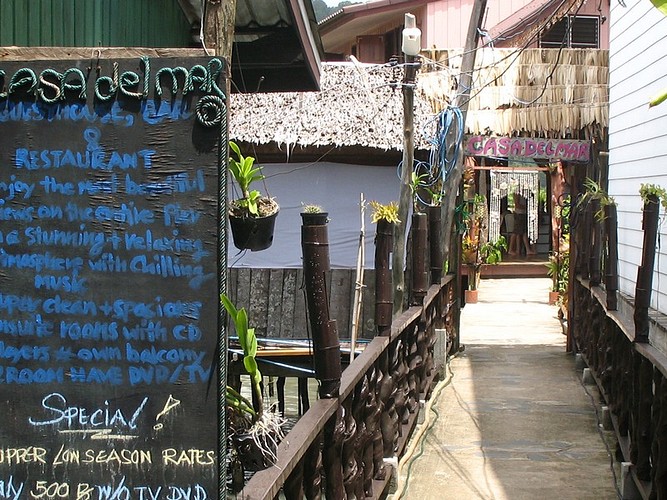 Casa del Mar
Guest House, Bar
&
RESTAURANT
njoy the most beautiful
views on the entire Pier
a stunning + relaxing
tmosphere with chilling
music
uper clean + spacious
nsuite rooms with CD
layers + own balcony
ROOM HAVE DVD/TV
SPECIAL!
UPPER LOW SEASON RATES
500 B W/O TV DVD
CASA DEL MAR